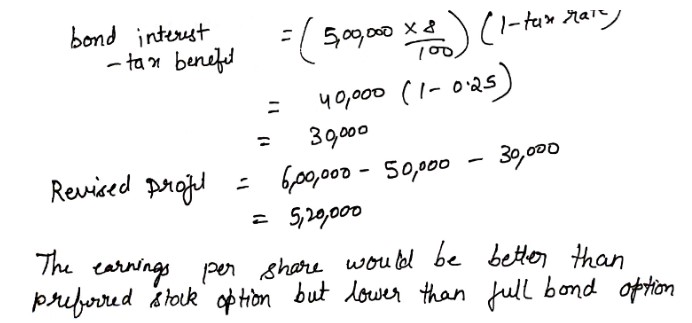 bond interest = (5,00,000 × 8/100) (1-tax rate)
- tax benefit
= 40,000 (1- 0.25)
= 30,000
Revised profit = 6,00,000 - 50,000 - 30,000
= 5,20,000
The earnings per share would be better than
preferred stock option but lower than full bond option